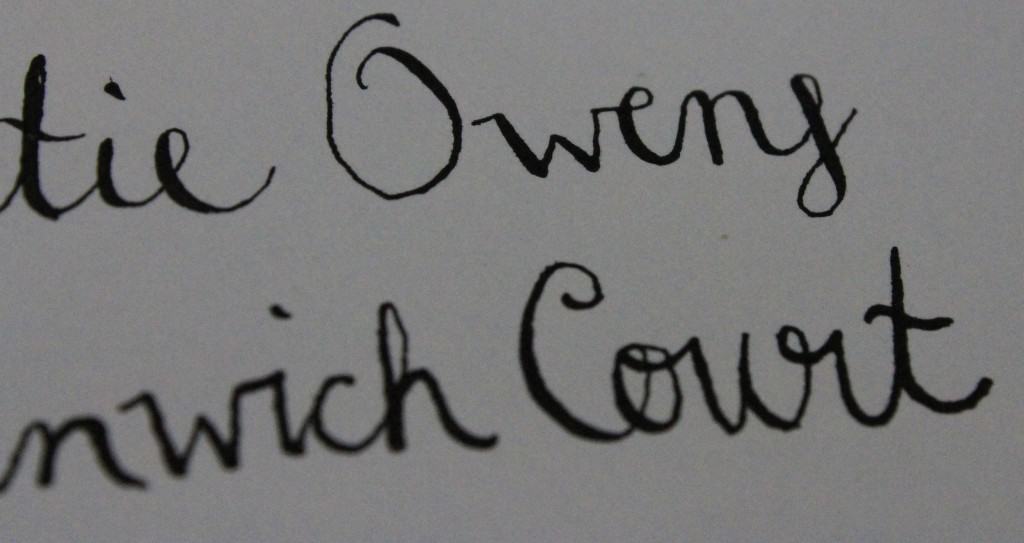 tie Owens
nwich Court